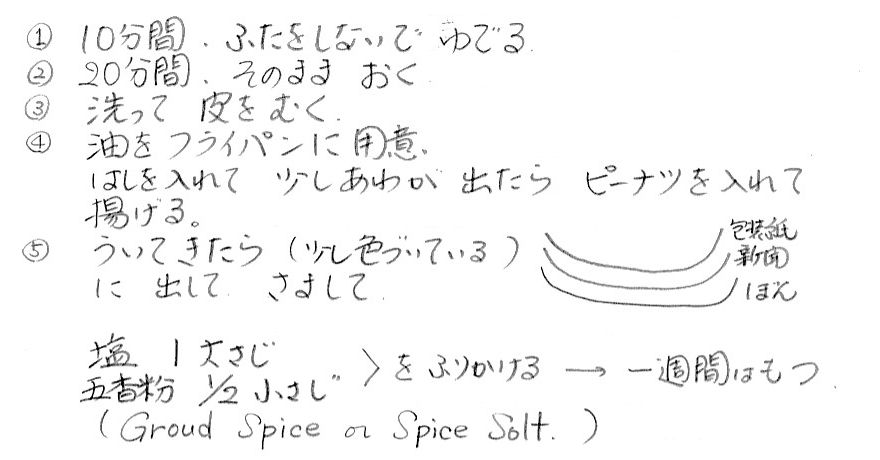 ① 10分間、ふたをしないで ゆでる
② 20分間、そのまま おく
③ 洗って 皮をむく.
④ 油をフライパンに用意、
はしを入れて 少しあわが 出たら ピーナツを入れて
揚げる。
⑤ ういてきたら (少し色づいている)
包装紙
新聞
に 出して さまして
ぼん
塩 1大さじ
五香粉 1/2 小さじ
〉をふりかける → 一週間はもつ
(Groud Spice or Spice Solt.)